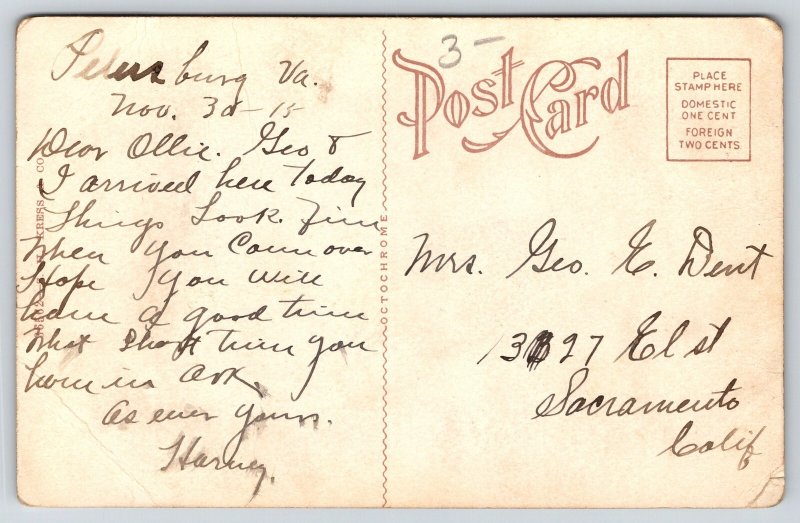 Petersburg Va.
Nov. 30-15
Dear Ollie. Geo &
I arrived here today
Things Look fine
when you Come over
Hope you will
have a good time
what short time you
have in Ark.
As ever yours.
Harvey.
KRESS CO
OCTOCHROME
3-
Post Card
PLACE
STAMP HERE
DOMESTIC
ONE CENT
FOREIGN
TWO CENTS
Mrs. Geo. E. Dent
1327 E st
Sacramento
Calif